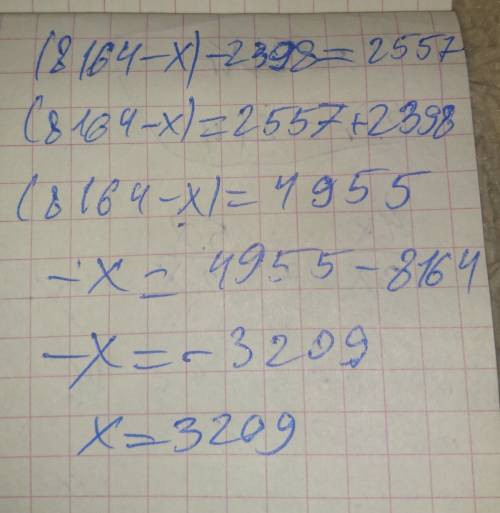 (8164-x)-2398=2557
(8164-x)=2557+2398
(8164-x)=4955
-x=4955-8164
-x=-3209
x=3209